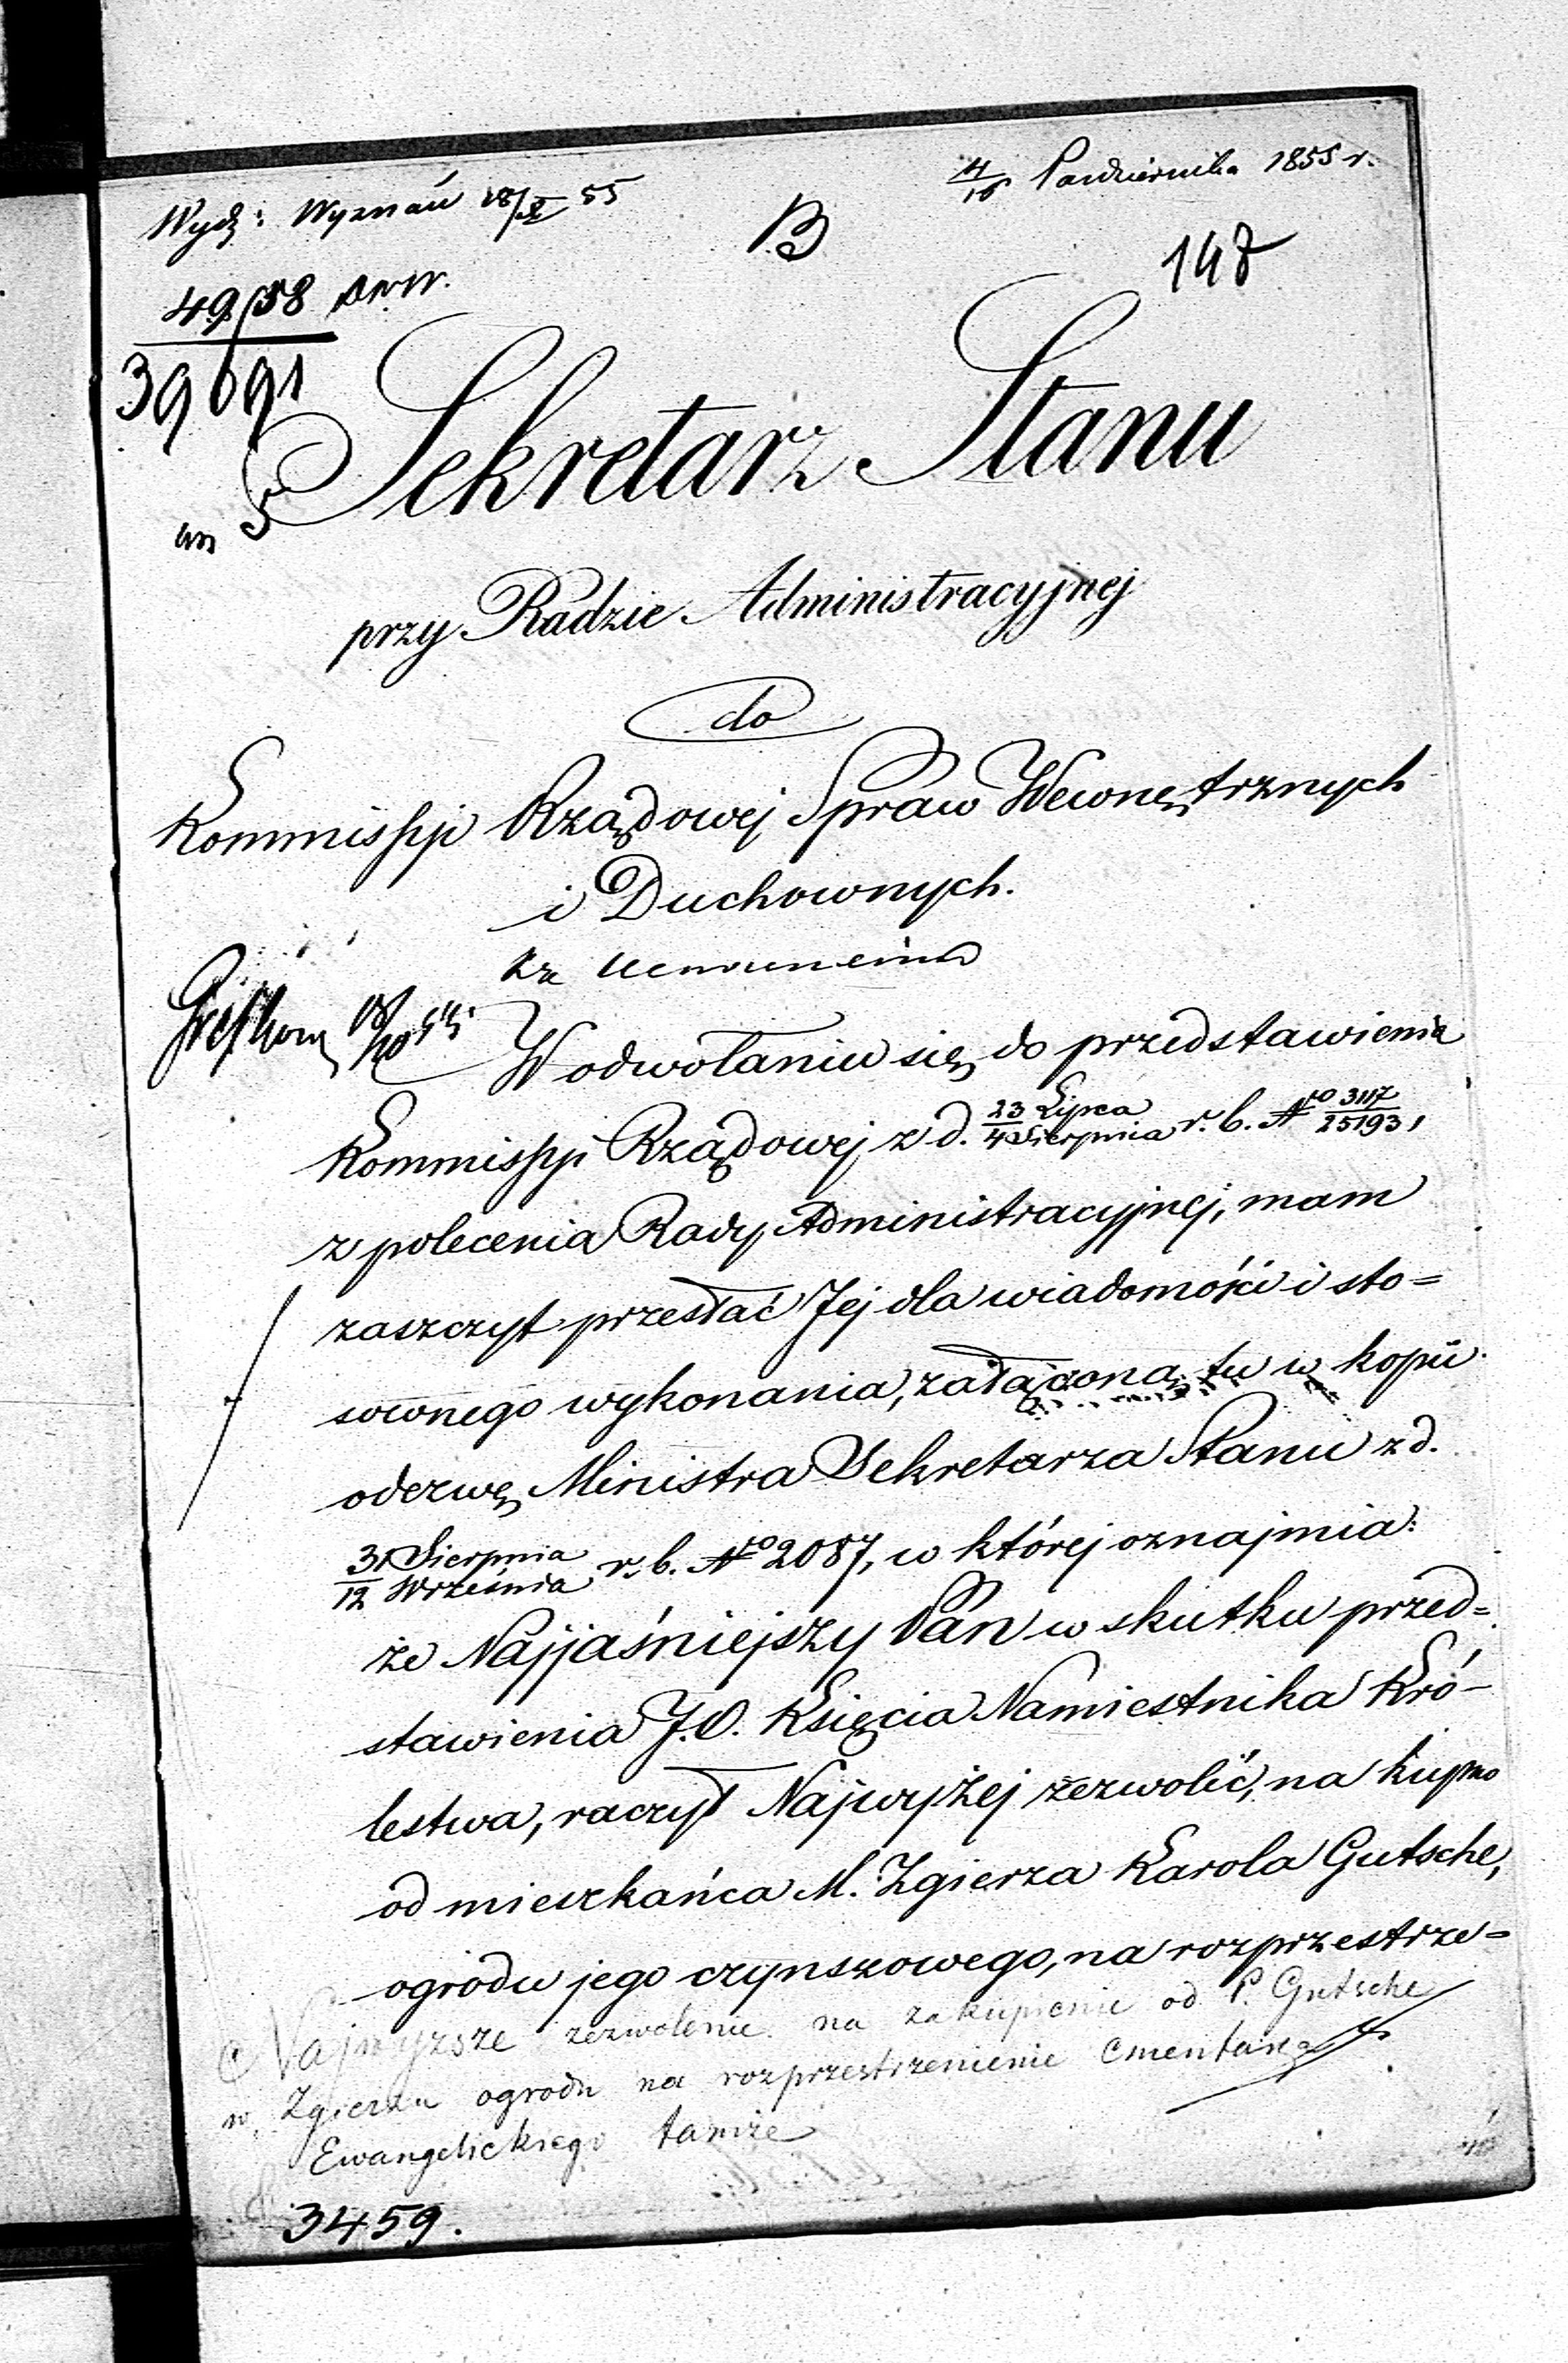 Wydz: Wyznań 18/X 55
4/16 Października 1855 r.
B
148
49/58
39691
Sekretarz Stanu
przy Radzie Administracyjnej
do
Kommissyi Rządowej Spraw Wewnętrznych
i Duchownych.
18/10 55
W odwołaniu się do przedstawienia
Kommissyi Rządowej z d. 23 Lipca / 4 Sierpnia r. b. Nro 3117/25193,
z polecenia Rady Administracyjnej, mam
zaszczyt przesłać Jej dla wiadomości i sto=
sownego wykonania, załączoną tu w kopii
odezwę Ministra Sekretarza Stanu z d.
31 Sierpnia / 12 Września r. b. Nro 2087, w której oznajmia:
że Najjaśniejszy Pan w skutku przed=
stawienia J.O. Księcia Namiestnika Kró-
lestwa, raczył Najwyżej zezwolić, na kupno
od mieszkańca M. Zgierza Karola Gutsche,
ogrodu jego czynszowego, na rozprzestrze=
Najwyzsze zezwolenie na zakupienie od P. Gutsche
w Zgierzu ogrodu na rozprzestrzenienie Cmentarza
Ewangelickiego tamże
3459.